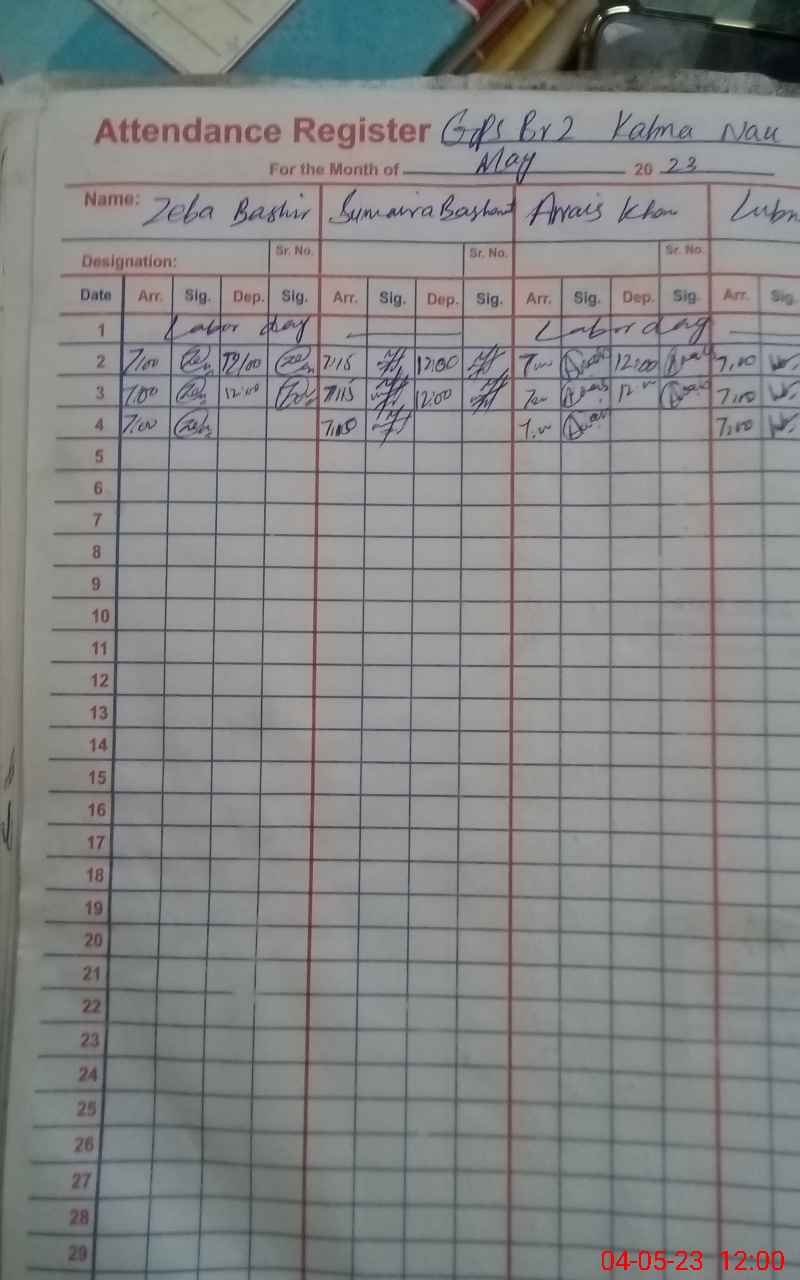 Attendance Register GPS Br 2 Kahna Nau
For the Month of May 20 23
Name: Zeba Bashir Sumaira Bashart Arrais Khan Lubn
Designation: Sr. No. Sr. No. Sr. No.
Date Arr. Sig. Dep. Sig. Arr. Sig. Dep. Sig. Arr. Sig. Dep. Sig. Arr. Sig.
1 Labor day Labor day
2 7:00 12:00 7:15 12:00 7:00 12:00 7:00
3 7:00 12:00 7:15 12:00 7:00 12:00 7:00
4 7:00 7:00 7:00
5
6
7
8
9
10
11
12
13
14
15
16
17
18
19
20
21
22
23
24
25
26
27
28
29
04-05-23 12:00